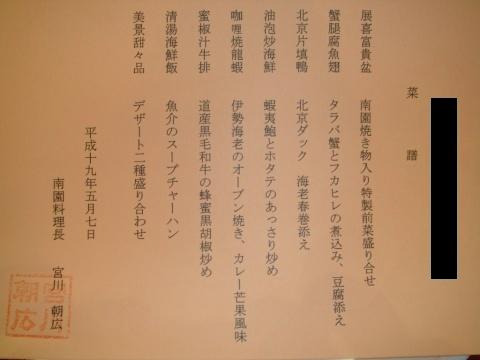 菜譜
展喜富貴盆　南園焼き物入り特製前菜盛り合せ
蟹腿腐魚翅　タラバ蟹とフカヒレの煮込み、豆腐添え
北京片填鴨　北京ダック　海老春巻添え
油泡炒海鮮　蝦夷鮑とホタテのあっさり炒め
咖喱焼龍蝦　伊勢海老のオーブン焼き、カレー芒果風味
蜜椒汁牛排　道産黒毛和牛の蜂蜜黒胡椒炒め
清湯海鮮飯　魚介のスープチャーハン
美景甜々品　デザート二種盛り合わせ
平成十九年五月七日
南園料理長　宮川　朝広
宮川
朝広